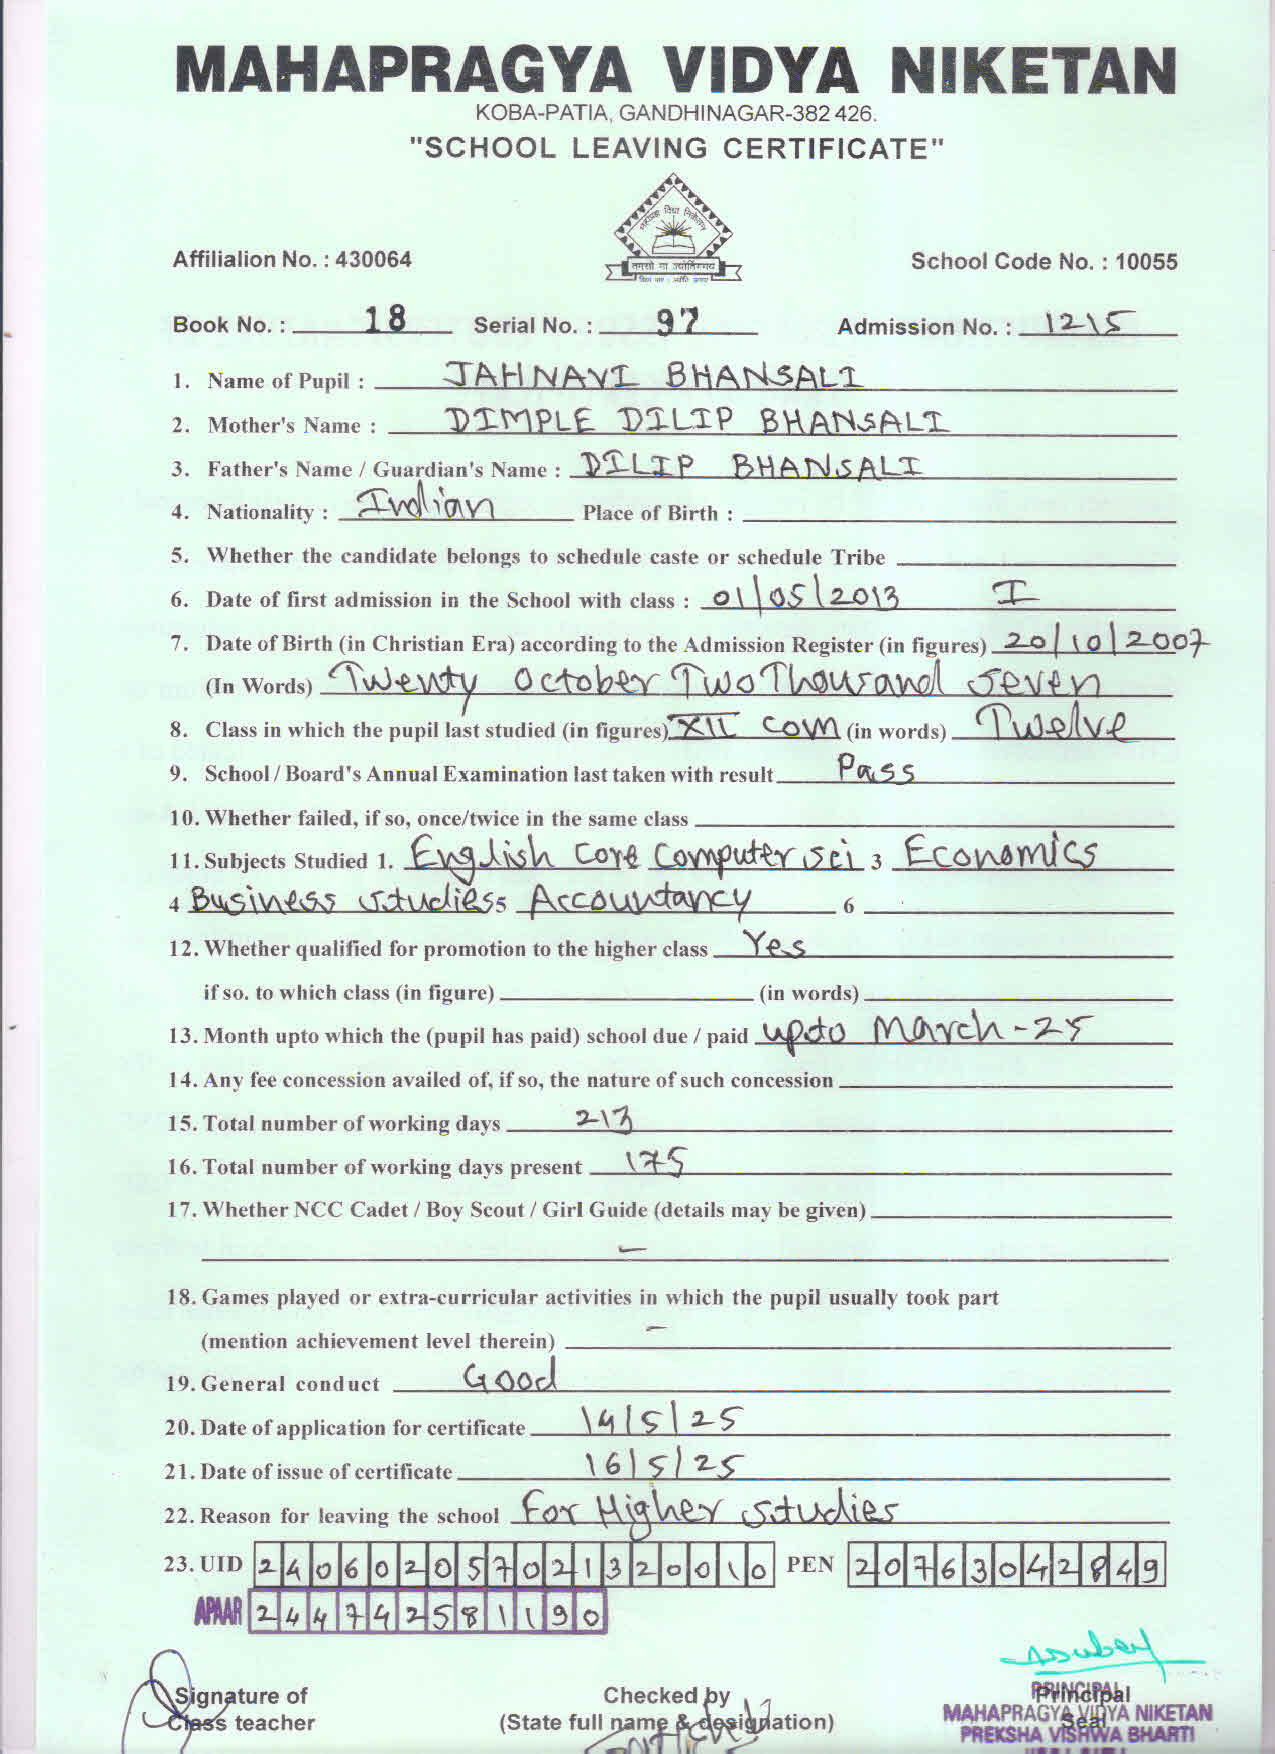 MAHAPRAGYA VIDYA NIKETAN
KOBA-PATIA, GANDHINAGAR-382 426.
"SCHOOL LEAVING CERTIFICATE"
तमसो मा ज्योतिर्गमय
Affilialion No. : 430064 School Code No. : 10055
Book No. : 18 Serial No. : 97 Admission No. : 1215
1. Name of Pupil : JAHNAVI BHANSALI
2. Mother's Name : DIMPLE DILIP BHANSALI
3. Father's Name / Guardian's Name : DILIP BHANSALI
4. Nationality : Indian Place of Birth :
5. Whether the candidate belongs to schedule caste or schedule Tribe
6. Date of first admission in the School with class : 01/05/2013 I
7. Date of Birth (in Christian Era) according to the Admission Register (in figures) 20/10/2007
(In Words) Twenty October Two Thousand Seven
8. Class in which the pupil last studied (in figures) XII com (in words) Twelve
9. School / Board's Annual Examination last taken with result Pass
10. Whether failed, if so, once/twice in the same class
11. Subjects Studied 1. English Core Computer sci 3 Economics
4 Business Studies 5 Accountancy 6
12. Whether qualified for promotion to the higher class Yes
if so. to which class (in figure) (in words)
13. Month upto which the (pupil has paid) school due / paid upto March-25
14. Any fee concession availed of, if so, the nature of such concession
15. Total number of working days 213
16. Total number of working days present 175
17. Whether NCC Cadet / Boy Scout / Girl Guide (details may be given)
–
18. Games played or extra-curricular activities in which the pupil usually took part
(mention achievement level therein) –
19. General conduct Good
20. Date of application for certificate 14/5/25
21. Date of issue of certificate 16/5/25
22. Reason for leaving the school For Higher Studies
23. UID 240602057021320010 PEN 20763042849
APAAR 244742581190
Signature of Checked by Principal
Class teacher (State full name & designation) Seal
PRINCIPAL
MAHAPRAGYA VIDYA NIKETAN
PREKSHA VISHWA BHARTI